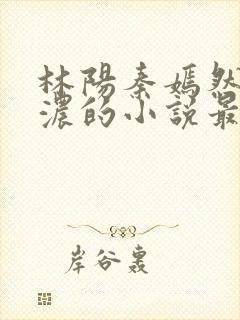 林陽秦嫣然
濃的小說最
岸谷轟